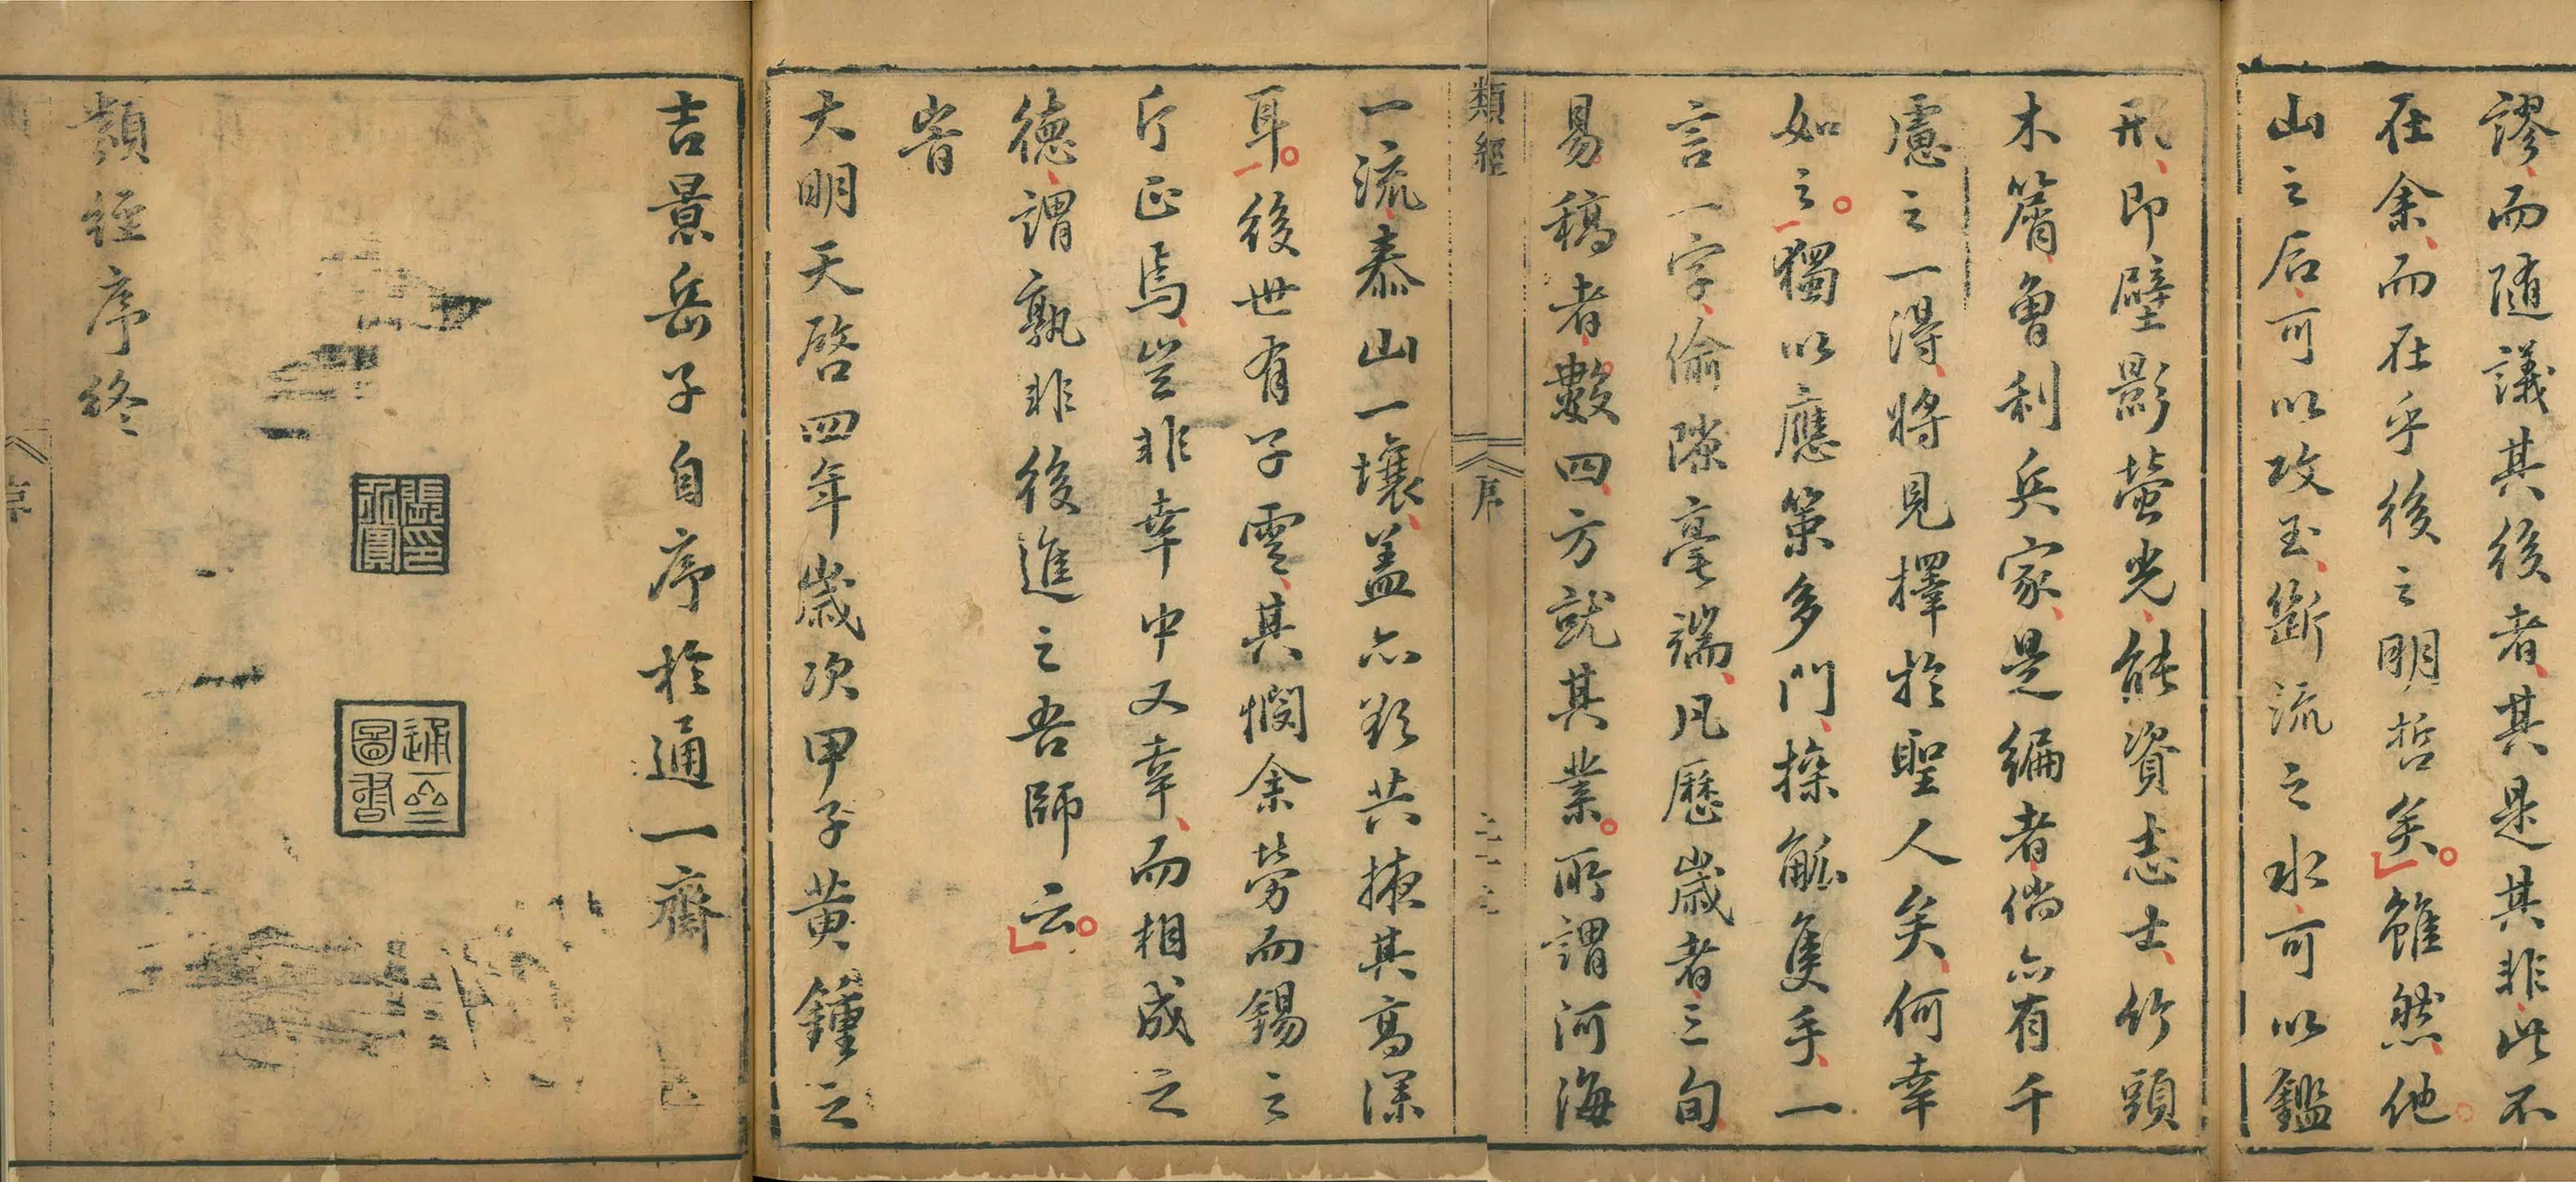 謬而随議其後者其是其非此不
在余而在乎後之明哲矣雖然他
山之石可以攻玉斷流之水可以鑑
形即壁影螢光能資志士竹頭
木屑曾利兵家是編者倘亦有千
慮之一得將見擇於聖人矣何幸
如之獨以應策多門操觚隻手一
言一字偷隙毫端凡歷歲者三旬
易稿者數四方就其業所謂河海
類經
序
一流泰山一壤盖亦欲共掖其高深
耳後世有子雲其憫余勞而錫之
斤正焉豈非幸中又幸而相成之
德謂孰非後進之吾師云
旹
大明天啓四年歲次甲子黄鐘之
吉景岳子自序於通一齋
通一
圖書
類經序終
序